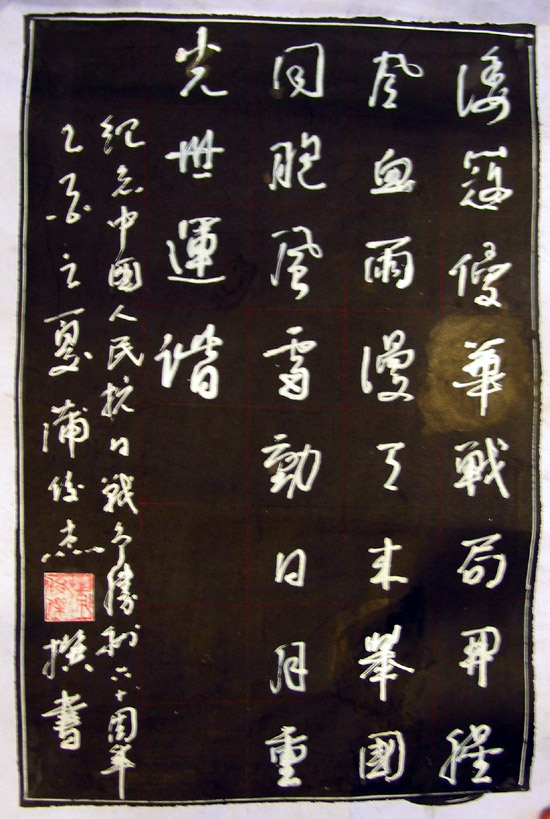 倭寇侵華戰局開腥
風血雨漫天来舉國
同胞風雷動日月重
光世運谐
紀念中國人民抗日戰争勝利六十周年
乙酉之夏蒲俊杰撰書